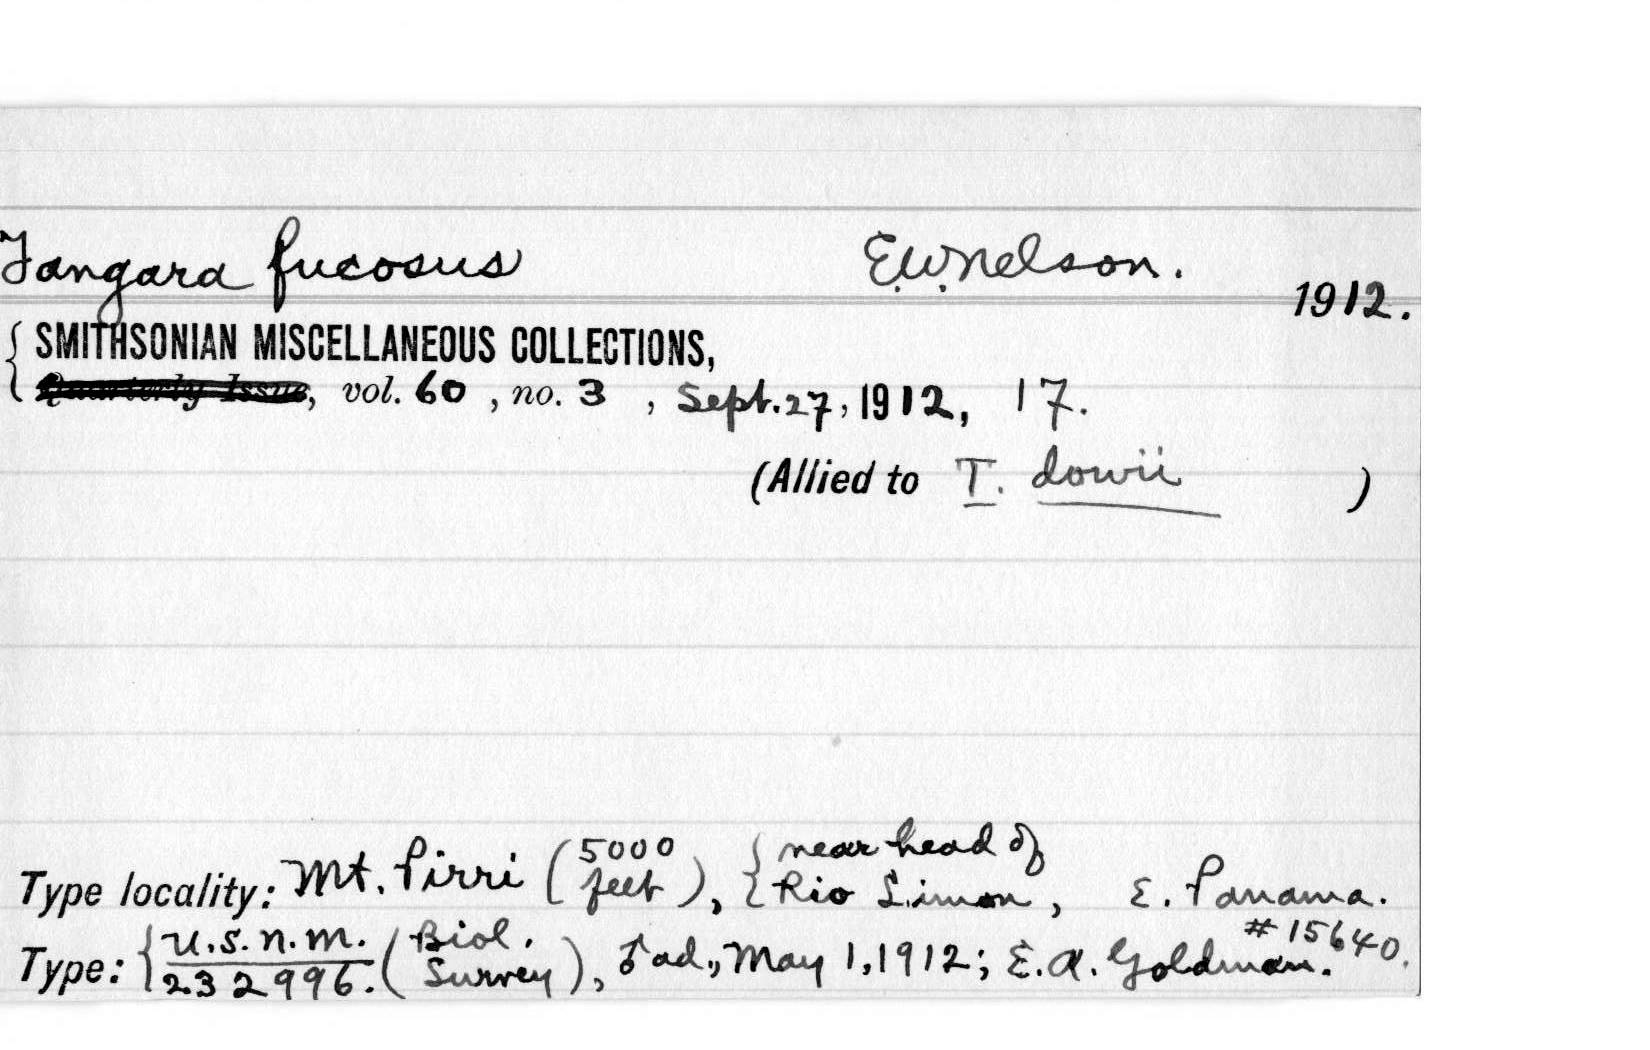 Tangara fucosus E.W. Nelson.
1912.
SMITHSONIAN MISCELLANEOUS COLLECTIONS,
Quarterly Issue, vol. 60, no. 3, Sept. 27, 1912, 17.
(Allied to T. dowii )
Type locality: Mt. Pirri (5000 feet), {near head of Rio Limon, E. Panama.
Type: {U.S.N.M. 232996. (Biol. Survey), ♂ ad., May 1, 1912; E.A. Goldman. #15640.